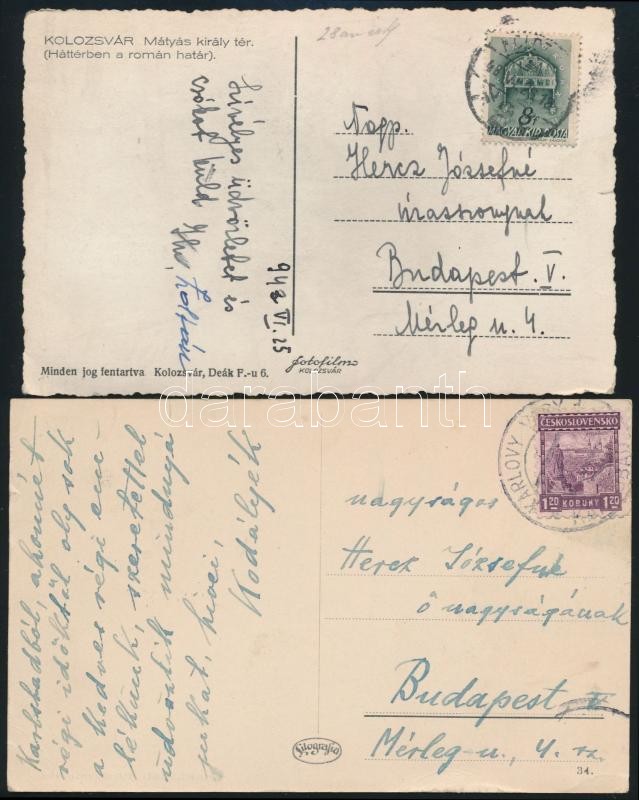 KOLOZSVÁR Mátyás király tér.
(Háttérben a román határ).
8f
MAGYAR KIR. POSTA
Szívélyes üdvözletet és
csókot küld
Zoltán
942 VI. 25
Nagys.
Hercz Józsefné
úrasszonynak
Budapest. V.
Mérleg u. 4.
Minden jog fentartva Kolozsvár, Deák F.-u 6.
fotofilm
KOLOZSVÁR
darabanth
KARLOVY VARY 1
ČESKOSLOVENSKO
1 20 KORUNY 1 20
Karlsbadból, ahonnét
régi időktől oly sok
a kedves régi em-
lékünk, szeretettel
üdvözlik mindnyá-
jukat, hívei,
Kodályék
nagyságos
Hercz Józsefné
ő nagyságának
Budapest V
Mérleg-u. 4. sz.
Fitografia
34.